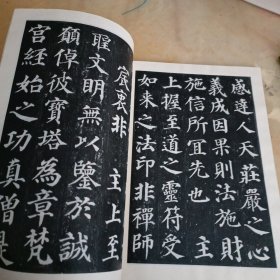 感達人天莊嚴之心
義成因果則法施財
施信所宜先也
上握至道之靈符受
如來之法印非禪師
宸衷非　主上至
聖文明無以鑒於誠
願倬彼寶塔為章梵
宮經始之功真僧是